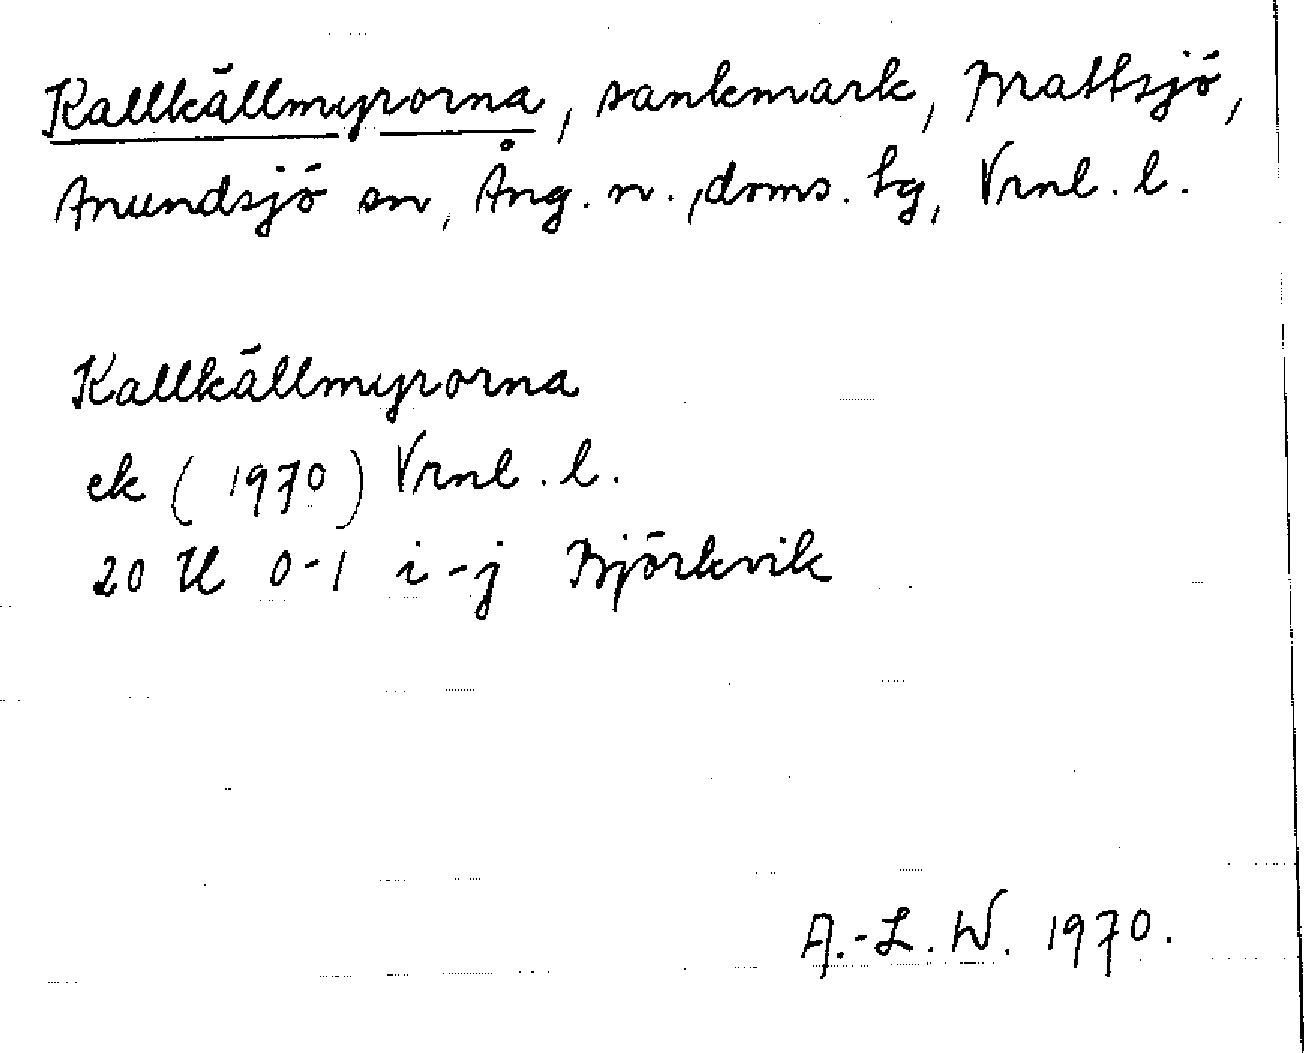 Kallkällmyrorna, sankmark, Brattsjö,
Anundsjö sn, Ång. n., doms. hg, Vrnl. l.
Kallkällmyrorna
ek (1970) Vrnl. l.
20 H 0-1 i-j Björkvik
A.-L. W. 1970.